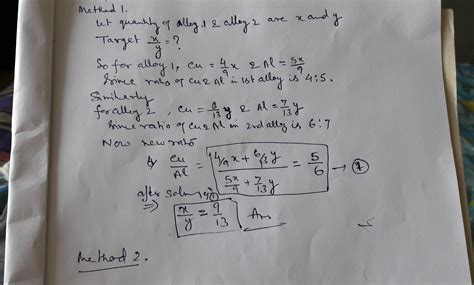 Method 1.
Let quantity of alloy 1 & alloy 2 are x and y
Target x/y = ?
So for alloy 1, Cu = 4/9 x & Al = 5x/9
Since ratio of Cu & Al in 1st alloy is 4:5.
Similarly
for alloy 2, Cu = 6/13 y & Al = 7/13 y
Since ratio of Cu & Al in 2nd alloy is 6:7
Now new ratio
Cu/Al = (4/9 x + 6/13 y)/(5x/9 + 7/13 y) = 5/6 →
after solving
⇒ x/y = 9/13 Ans
Method 2.